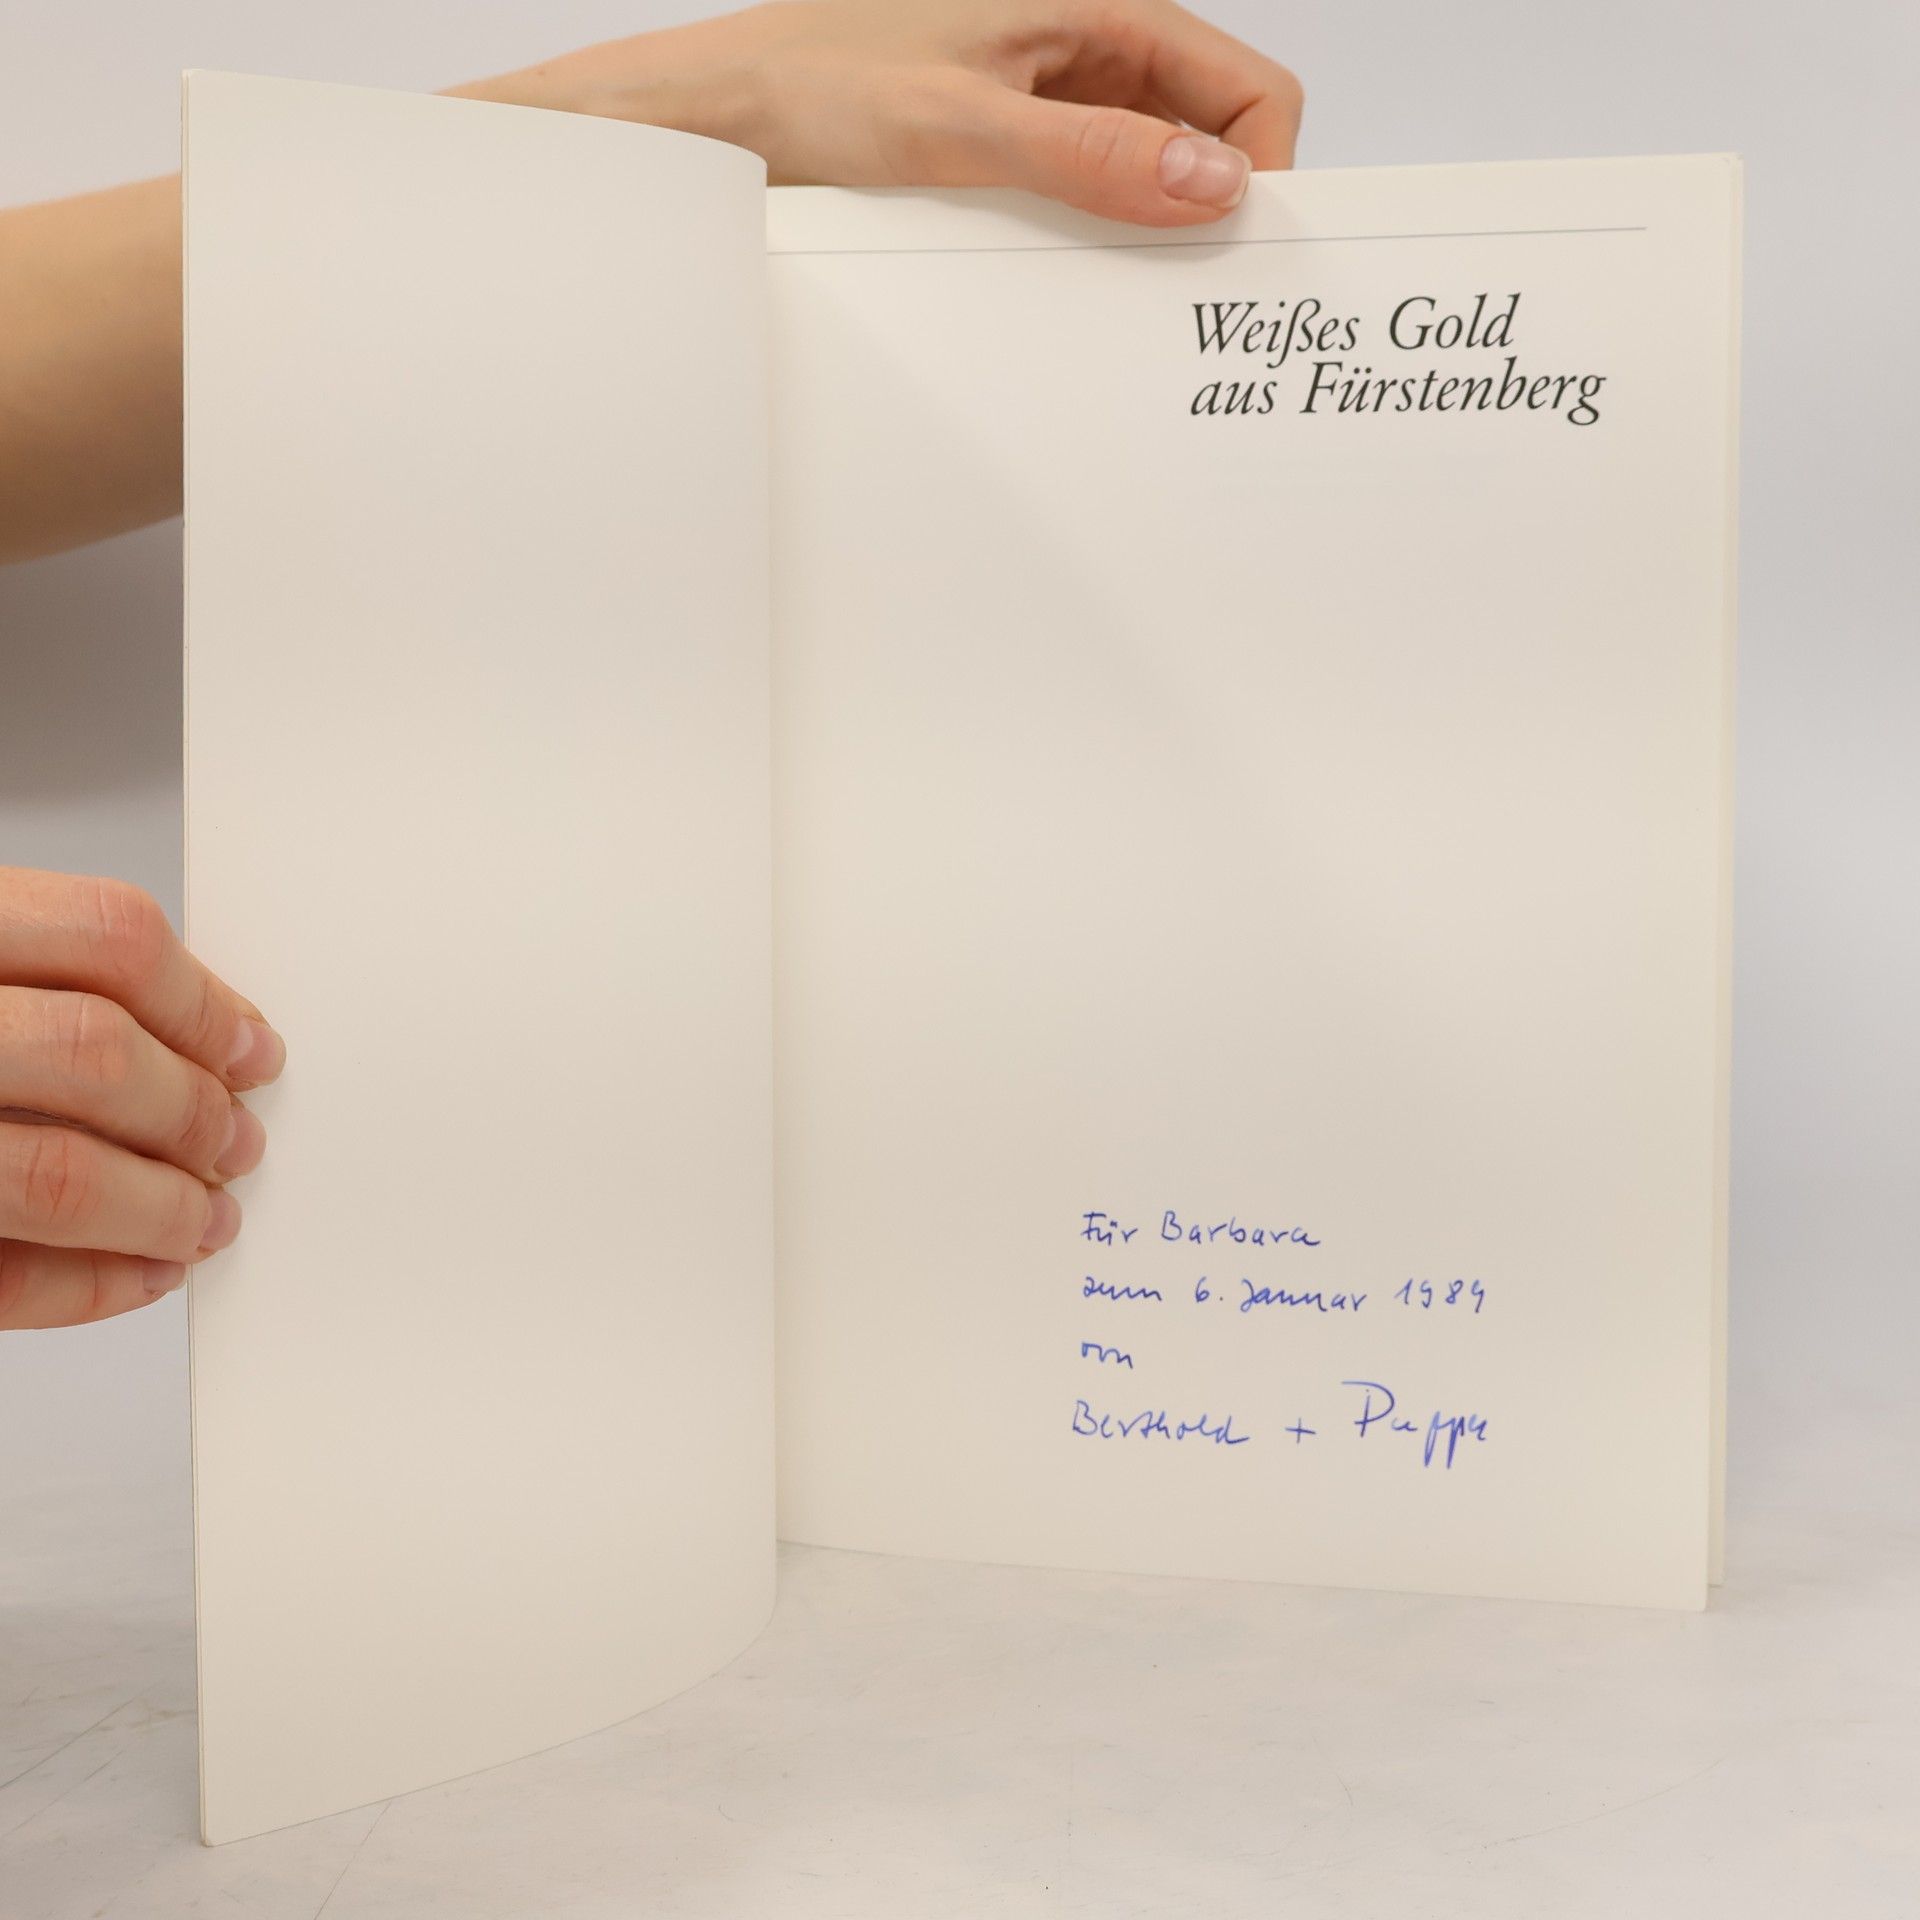 Weißes Gold
aus Fürstenberg
Für Barbara
zum 6. Januar 1989
von
Berthold + Puppe